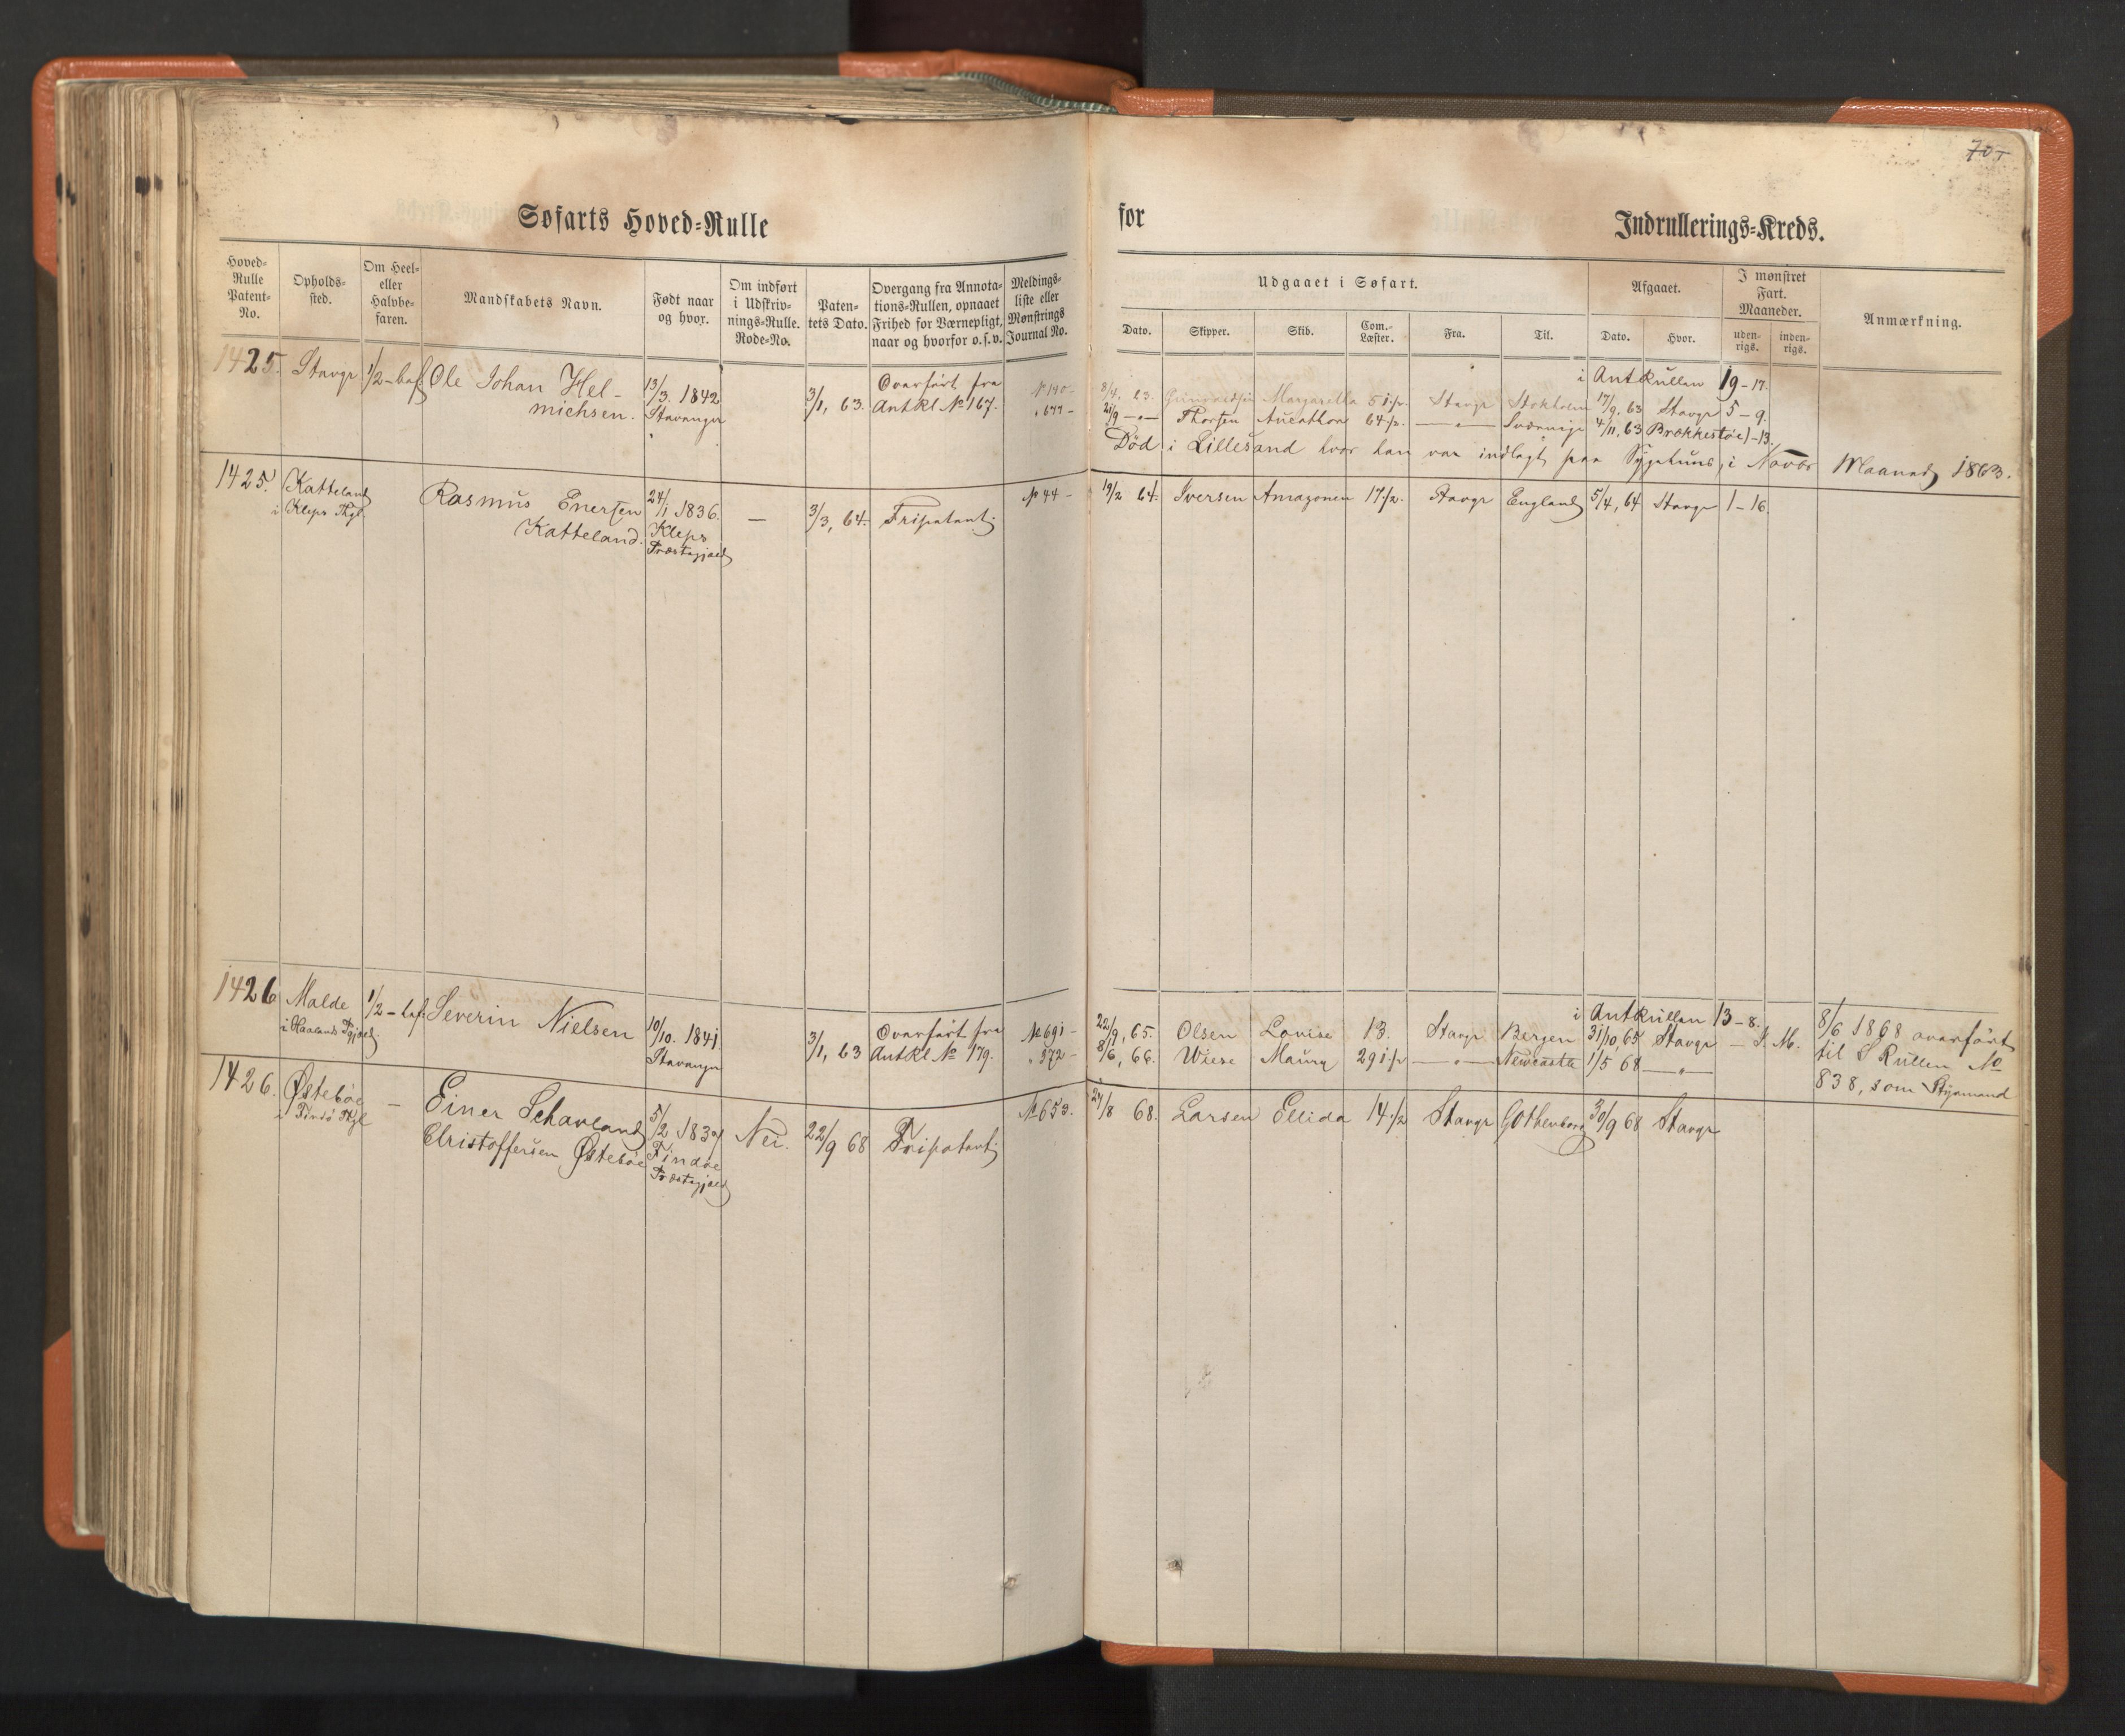 70
Søfarts Hoved-Rulle
for
Indrullerings-Kreds.
Hoved-Rulle Patent-No.
Opholds-sted.
Om Heel- eller Halvbe-faren.
Mandskabets Navn.
Født naar og hvor.
Om indført i Udskriv-nings-Rulle. Rode-No.
Paten-tets Dato.
Overgang fra Annota-tions-Rullen, opnaaet Frihed for Værnepligt, naar og hvorfor o. s. v.
Meldings-liste eller Mønstrings Journal No.
Udgaaet i Søfart.
Dato.
Skipper.
Skib.
Com.-Læster.
Fra.
Til.
Afgaaet.
Dato.
Hvor.
I mønstret Fart. Maaneder.
uden-rigs.
inden-rigs.
Anmærkning.
1425. Stavgr 1/2-bef. Ole Johan Hel-
michsen.
13/3. 1842
Stavanger
3/1, 63.
Overført fra
Antkl No 167.
i Antkullen 19-17.
8/4. 63. Margaretha 51 1/2. Stavgr Stokholm 17/9. 63 Stavgr 5-9.
21/9 — " — Thorsen 64 1/2. — " — 4/11, 63 1-13.
Død i Lillesand hvor han var indlagt paa Sygehuus, i Novbr Maaned 1863.
1425. Katteland
i Klepp Pgl.
Rasmus Enersen
Katteland.
24/1 1836.
Klepp
Præstegjæld
—
3/3, 64.
Fripatent
No 44 -
19/2 64. Iversen Amazonen 17 1/2. Stavgr England 5/4, 64 Stavgr 1-16.
1426 Malde
i Haalands Pgjæld
1/2-bef. Severin Nielsen
10/10. 1841.
Stavanger
3/1, 63
Overført fra
Antkl No 179.
No 691 -
" 372 -
i Antkullen 13-8.
22/9, 65. Olsen Lovise 13. Stavgr Bergen 31/10, 65 Stavgr —
8/6, 66. Wiese Maury 29 1/2 — " — Newcastle 1/5 68 — " —
8/6 1868 overført
til S Rullen No
838, som Styrmand
1426. Østebøe
i Findö Pgl
—
Einer Schavland
Christoffersen Østebøe
5/2 1837
Findøe
Præstegjæld
Nei.
22/9 68
Fripatent
No 653.
24/8 68. Larsen Ellida 14 1/2 Stavgr Gothenborg 30/9 68 Stavgr